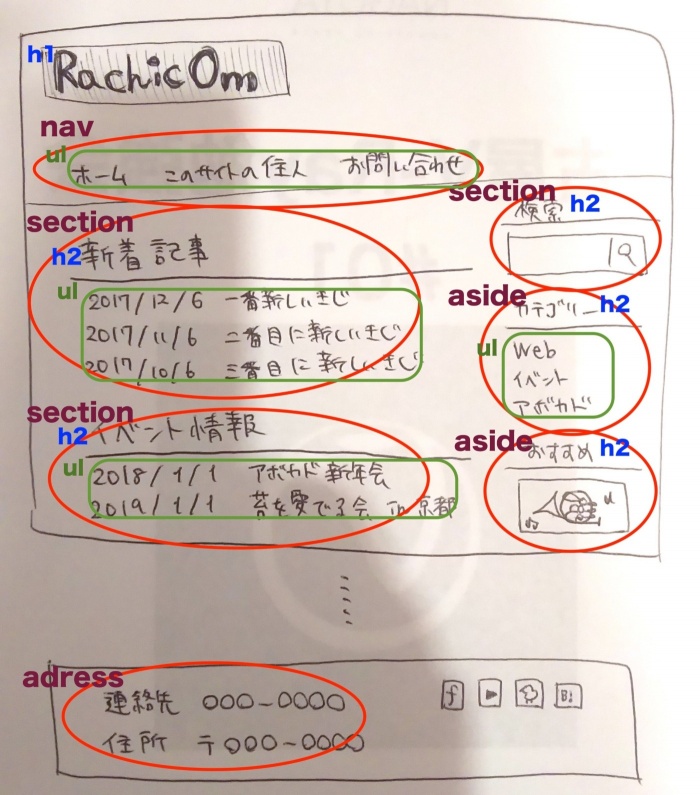 h1
RachicOm
nav
ul
ホーム このサイトの住人 お問い合わせ
section
h2
新着記事
ul
2017/12/6 一番新しいきじ
2017/11/6 二番目に新しいきじ
2017/10/6 三番目に新しいきじ
section
h2
イベント情報
ul
2018/1/1 アボカド新年会
2019/1/1 苔を愛でる会 in 京都
section
検索 h2
aside
カテゴリー h2
ul
Web
イベント
アボカド
aside
おすすめ h2
adress
連絡先 000-0000
住所 〒000-0000
f
B!